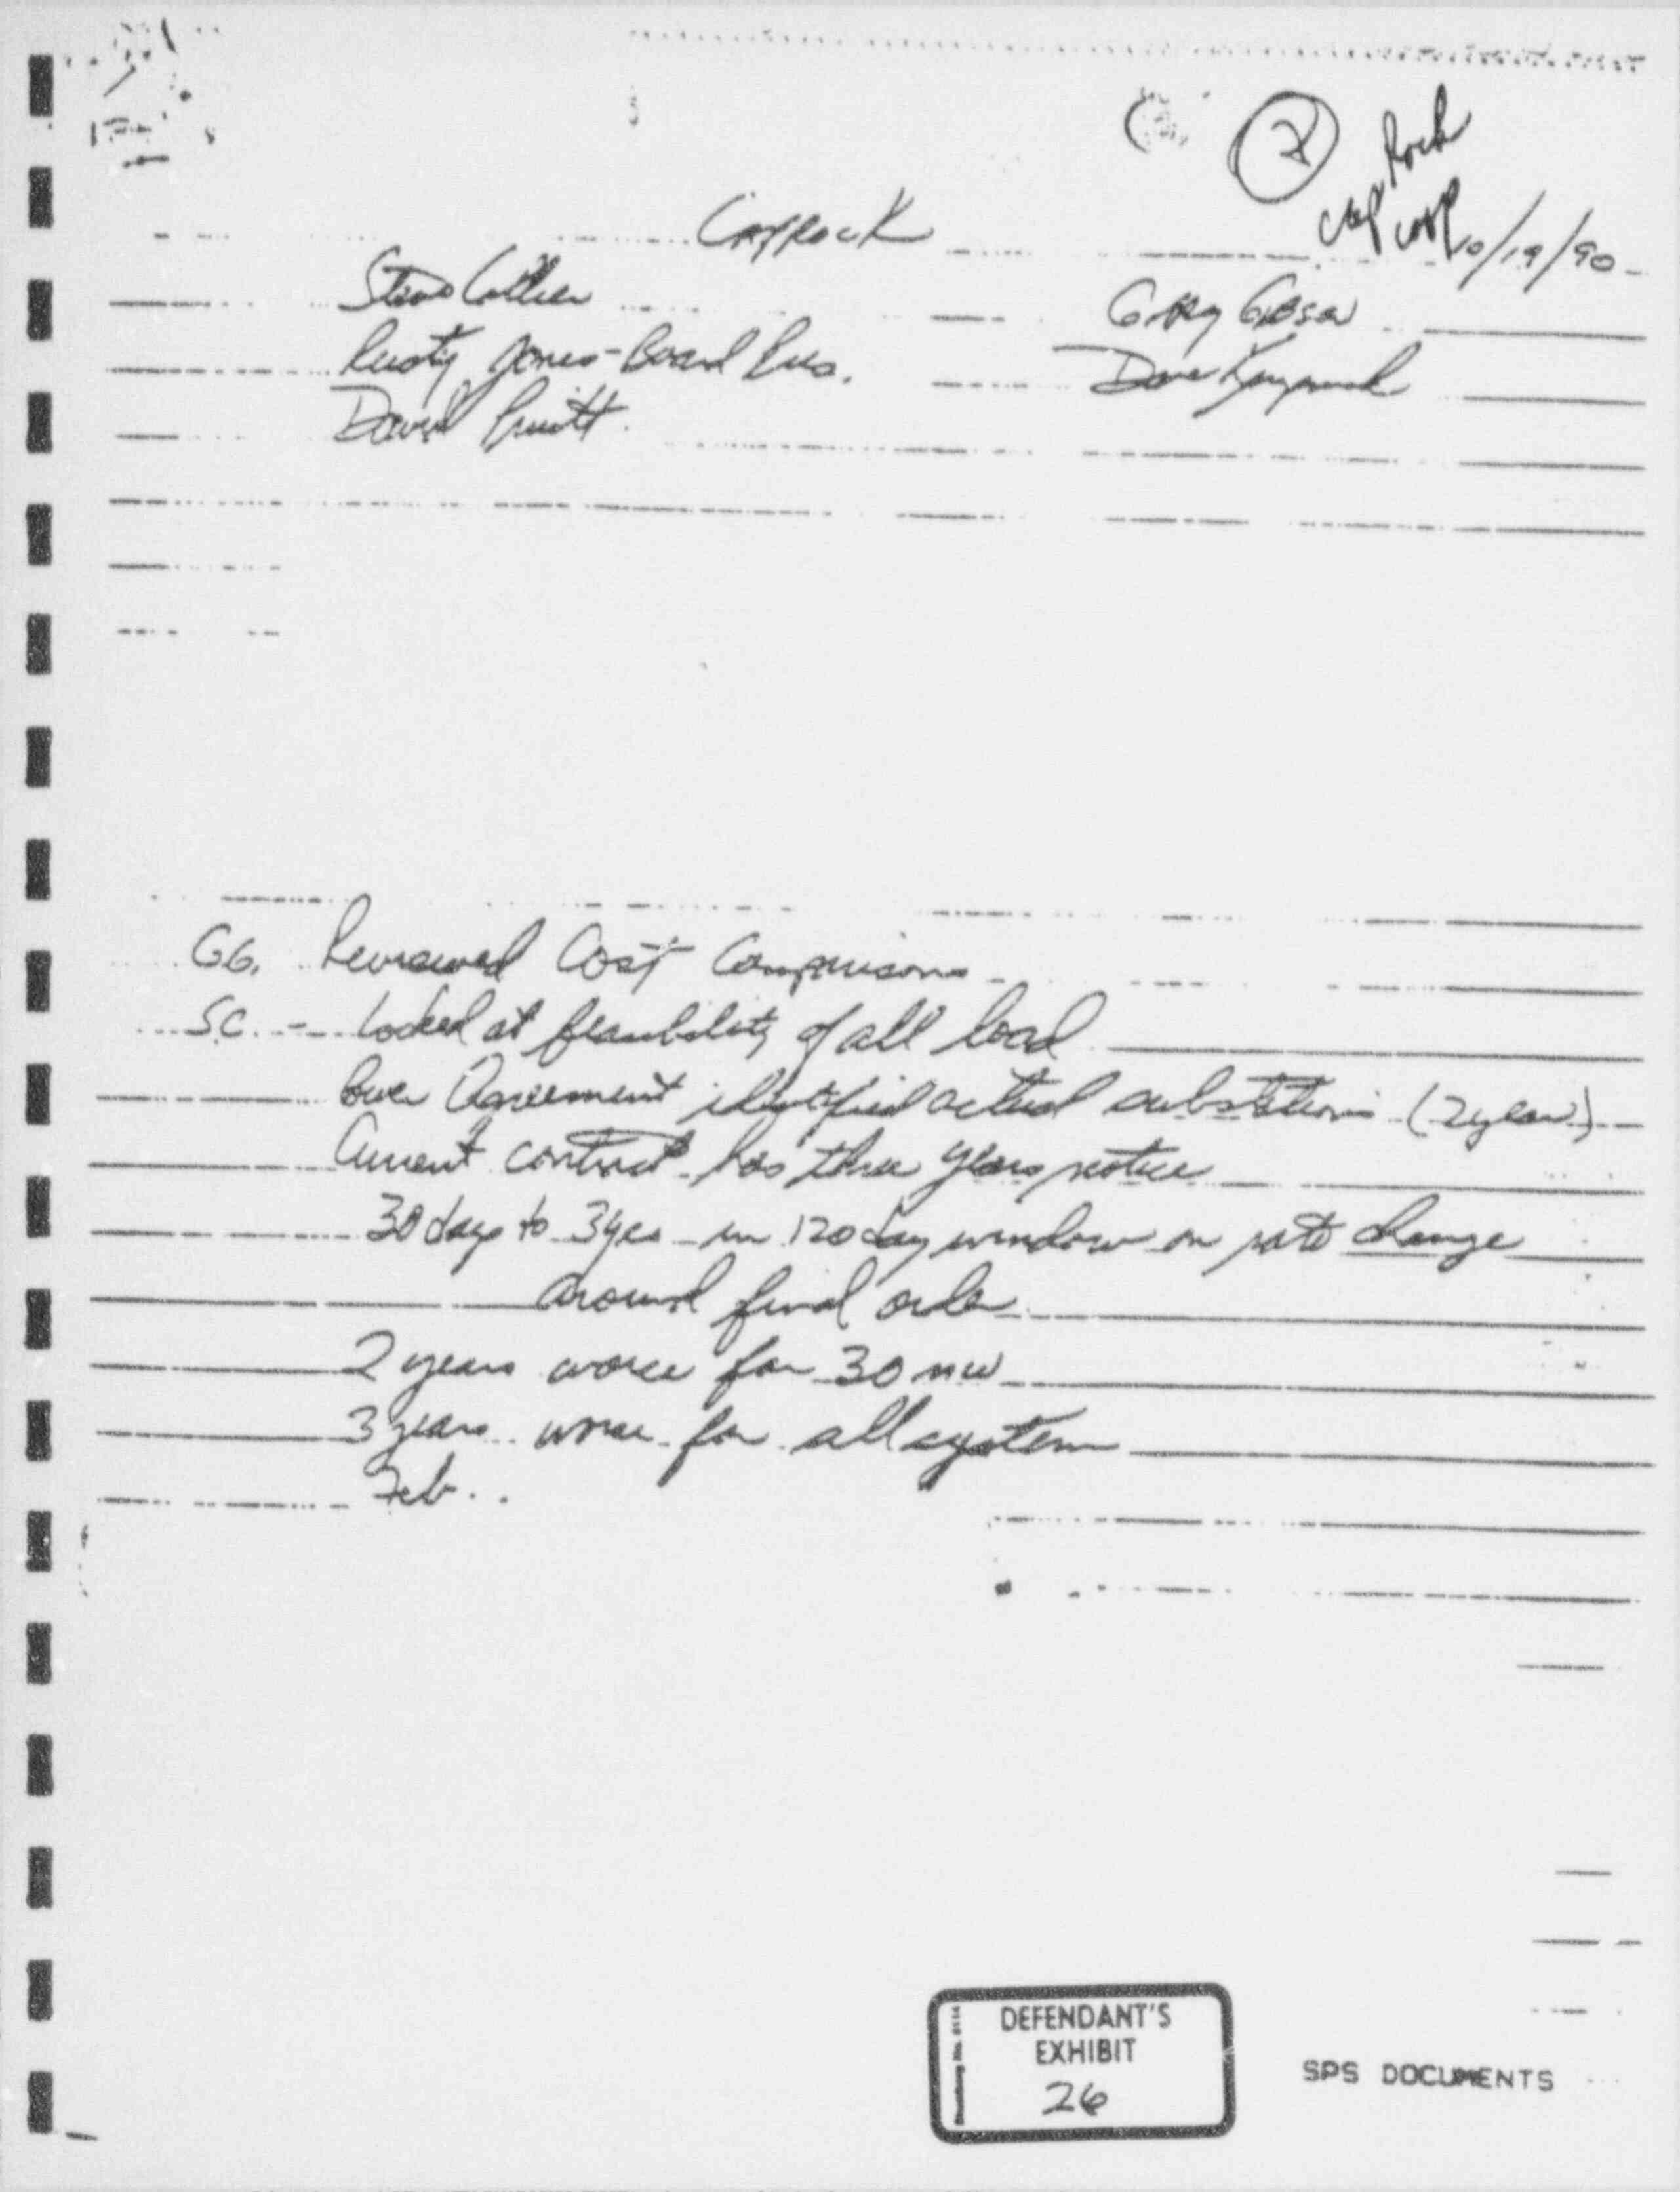 2
Cap Rock
Coop
Caprock 10/19/90
Steve Collier Gary Gibson
Rusty Jones - Board Pres. Dave
David Pruitt
GG. Reviewed Cost Comparisons
SC. - Looked at feasibility of all load
Power Agreement identified actual substations (2 years)
Current contract has three years notice
30 days to 3 yrs in 120 day window on rate change
around final order
2 years worse for 30 mw
3 years worse for all system
Feb..
DEFENDANT'S
EXHIBIT
26
SPS DOCUMENTS